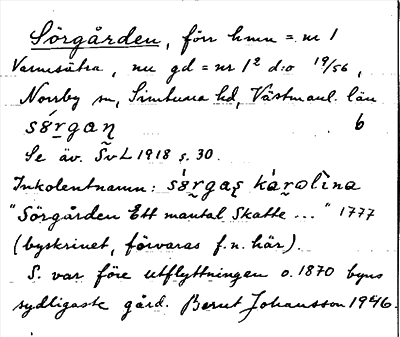 Sörgården, förr hmn = nr 1
Varmsätra, nu gd = nr 1² d:o 19/56,
Norrby sn, Simtuna hd, Västmanl. län
sö́r̲gaɳ 6
Se äv. SvL 1918 s. 30.
Inkolentnamn: sö́r̲gas̨ ká̀r̲olìna
"Sörgården Ett mantal Skatte ..." 1777
(byskrinet, förvaras f.n. här).
S. var före utflyttningen o. 1870 byns
sydligaste gård. Bernt Johansson 1946.